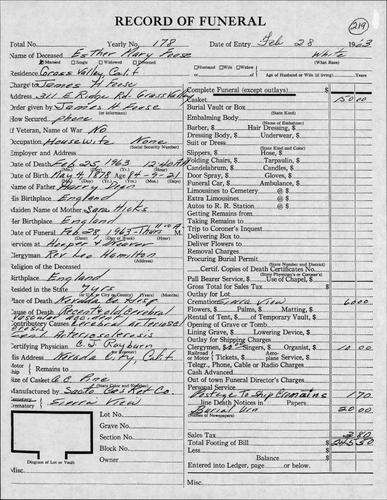 RECORD OF FUNERAL
219
Total No. Yearly No. 178 Date of Entry Feb 28 1963
Name of Deceased Esther Mary Foose White
Married Single Widowed Divorced Husband Wife Widow (What Race)
Residence Grass Valley, Calif Age of Husband or Wife (if living) Years
Charge to James H Foose
Address 311 E Ridge Rd. Grass Valley
Order given by James H Foose
(or informant)
How Secured phone
If Veteran, Name of War No
Occupation Housewife None
(Social Security Number)
Employer and Address
Date of Death Feb 25, 1963 12:40 AM
Date of Birth May 4, 1878 Age 84-9-21
Name of Father Harry Dean
His Birthplace England
Maiden Name of Mother Sara Hicks
Her Birthplace England
Date of Funeral Feb 28, 1963-Thurs 11:00 A M.
Services at Hooper & Weaver
Clergyman Rev Leo Hamilton
(Address)
Religion of the Deceased
Birthplace England
Resided in the State 74 yrs
Place of Death Nevada Co Hosp
Cause of Death Recent &old cerebral
Contributory Causes Cerebral arterioscl
erosis
Certifying Physician C J Rayburn
His Address Nevada City, Calif.
Motor Ship Remains to
Size of Casket 6 C Pine
Manufactured by Sacto Cas Ket Co
(State Color and Number)
Cemetery
Crematory Sierra View
Lot No.
Grave No.
Section No.
Block No.
Owner
Diagram of Lot or Vault
Misc.
Complete Funeral (except outlays) $
Casket 150 00
Burial Vault or Box
(Name of Embalmer)
Embalming Body
Barber, $ Hair Dressing, $
Dressing Body, $ Underwear, $
Suit or Dress
(State Kind and Color)
Slippers, $ Hose, $
Folding Chairs, $ Tarpaulin, $
Candelabrum, $ Candles, $
Door Spray, $ Gloves, $
Funeral Car, $ Ambulance, $
Limousines to Cemetery @ $
Extra Limousines @ $
Autos to R. R. Station @ $
Getting Remains from
Taking Remains to
Trip to Coroner's Inquest
Delivering Box to
Deliver Flowers to
Removal Charges
Procuring Burial Permit
(State Number and District)
Certif. Copies of Death Certificates No.
(State Physician's or Coroner's)
Pall Bearer Service, $ Use of Chapel, $
Gross Total for Sales Tax $
Outlay for Lot
Cremation Sierra View 60 00
Flowers, $ Palms, $ Matting, $
Rental of Tent, $ of Temporary Vault, $
Opening of Grave or Tomb
Lining Grave, $ Lowering Device, $
Outlay for Shipping Charges
Clergyman, $ Singers, $ Organist, $ 10 00
Railroad or Motor Tickets, $ Aeroplane Service, $
Telegr., Phone, Cable or Radio Charges
Cash Advanced
Out of town Funeral Director's Charges
Personal Service
Postage To Ship Cremains 1 70
line Death Notices in Papers
Burial Urn 20 00
Sales Tax 3 80
Total Footing of Bill $ 245 50
Less $
Balance $
Entered into Ledger, page or below.
Misc.